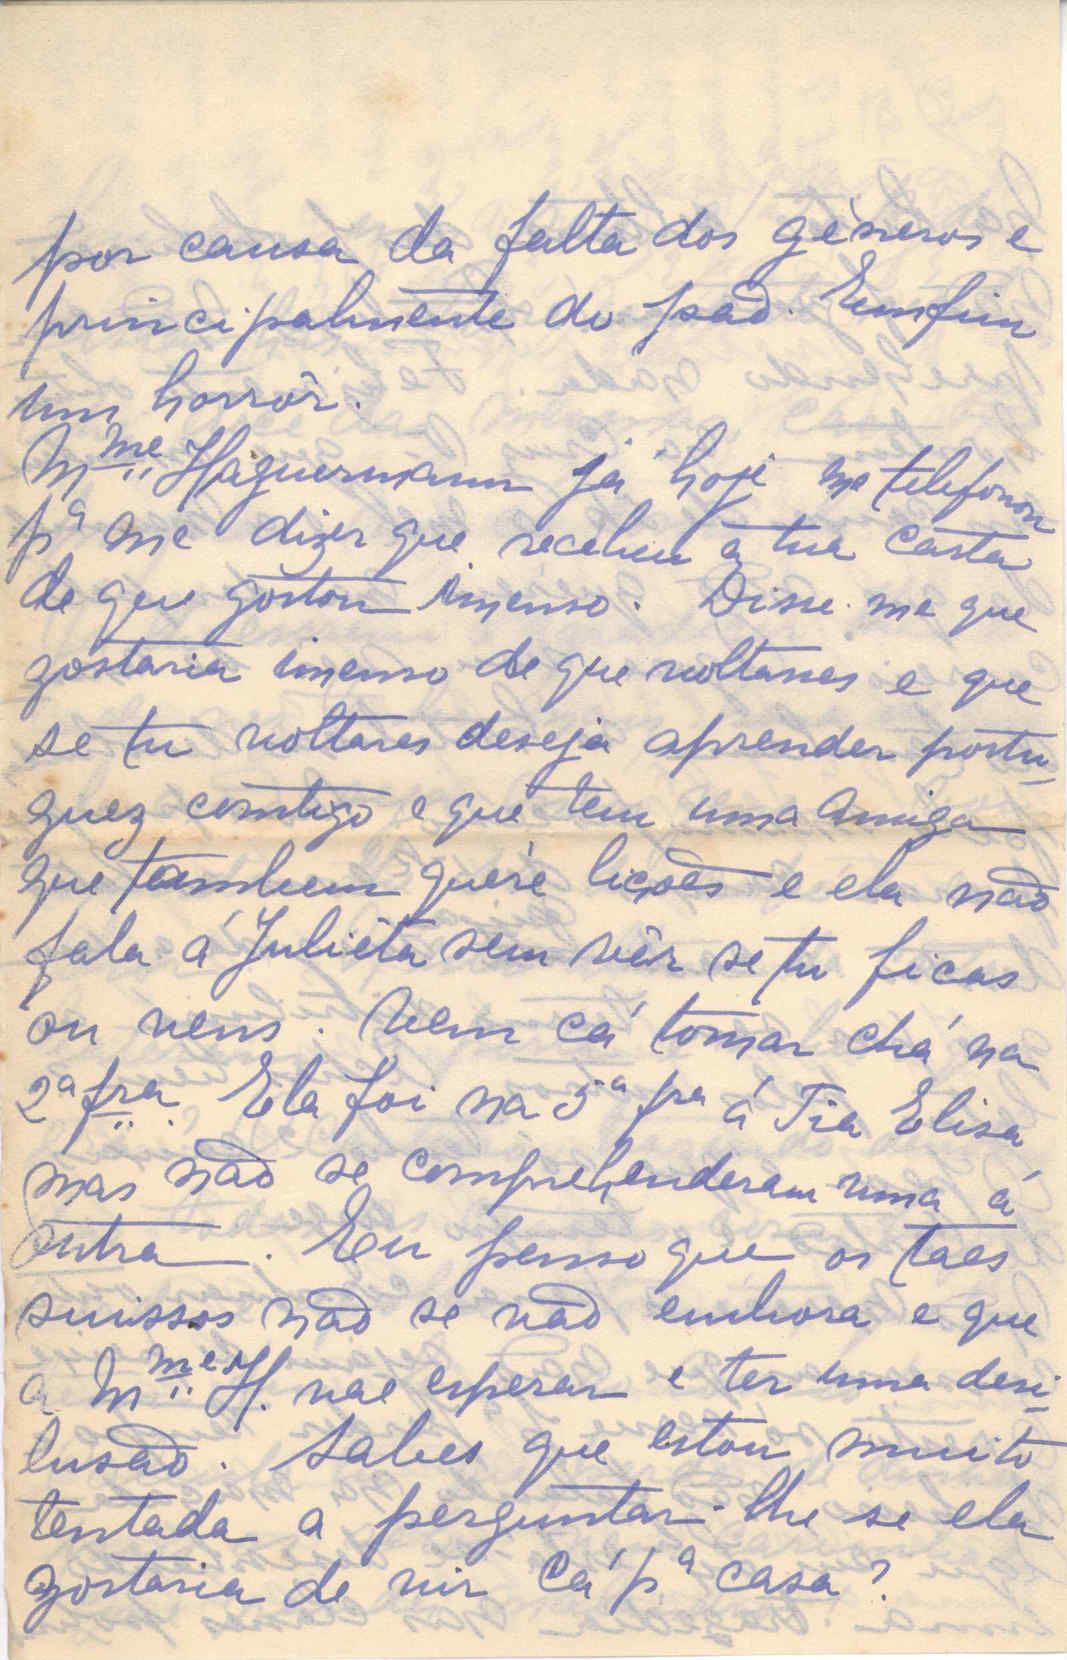 por causa da falta dos gèneros e
principalmente do pão. Emfim
um horrôr.
Mme Haguermann já hoje me telefonou
pª me dizer que recebeu a tua carta
de que gostou imenso. Disse-me que
gostaria imenso de que voltasses e que
se tu voltares deseja aprender portu-
guez comtigo e que tem uma amiga
que tambem quere lições e ela não
fala á Juliêta sem vêr se tu ficas
ou vens. Vem cá tomar chá na
2ª fra. Ela foi na 5ª fra á Tia Elisa
mas não se comprehenderam uma á
outra. Eu penso que os taes
suissos não se vão embora e que
a Mme H. vae esperar e ter uma desi-
lusão. Sabes que estou muito
tentada a perguntar-lhe se ela
gostaria de vir cá pª casa?